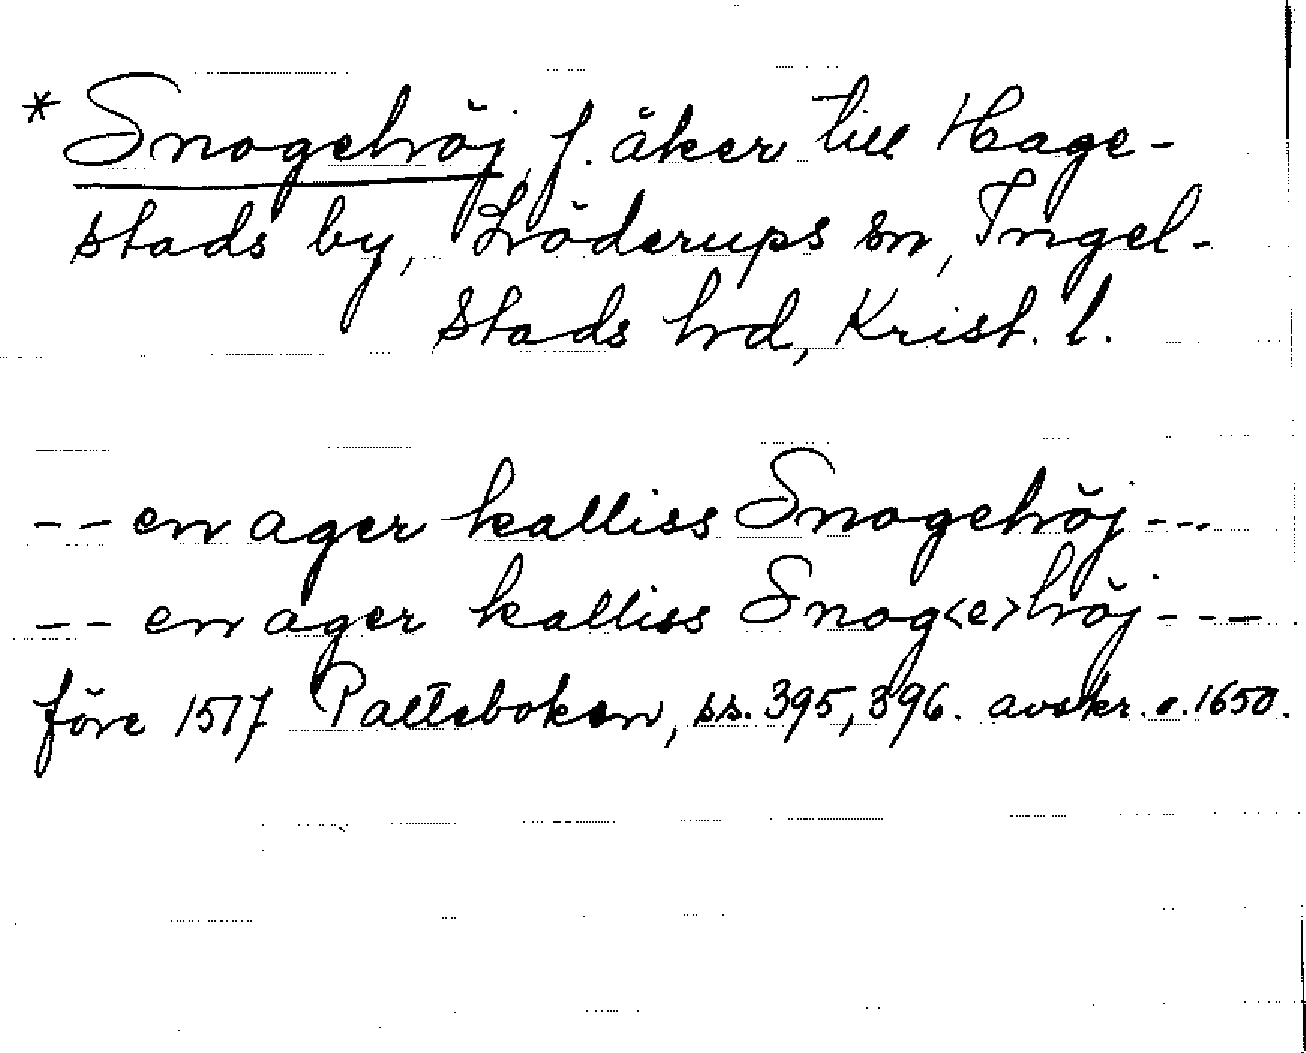 * Snogehöj, f. åker till Hage-
stads by, Löderups sn, Ingel-
stads hd, Krist. l.
-- en ager kalliss Snogehöj ---
-- en ager kalliss Snog<e>höj ---
före 1517 Palteboken, ss. 395, 396. avskr. e. 1650.